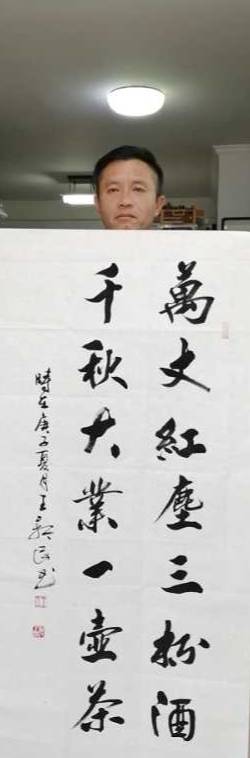 萬丈紅塵三杯酒
千秋大業一壺茶
時在庚子夏月王